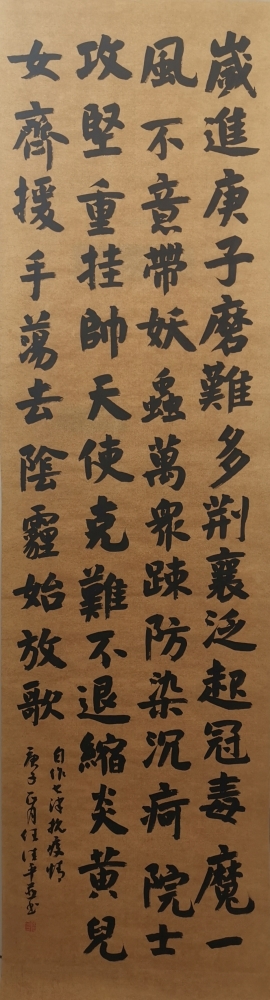 歲進庚子磨難多荆襄泛起冠毒魔一
風不意帶妖蟲萬衆踈防染沉疴院士
攻堅重挂帥天使克難不退縮炎黄兒
女齊援手蕩去陰霾始放歌
自作七律抗疫情
庚子正月任佳平書